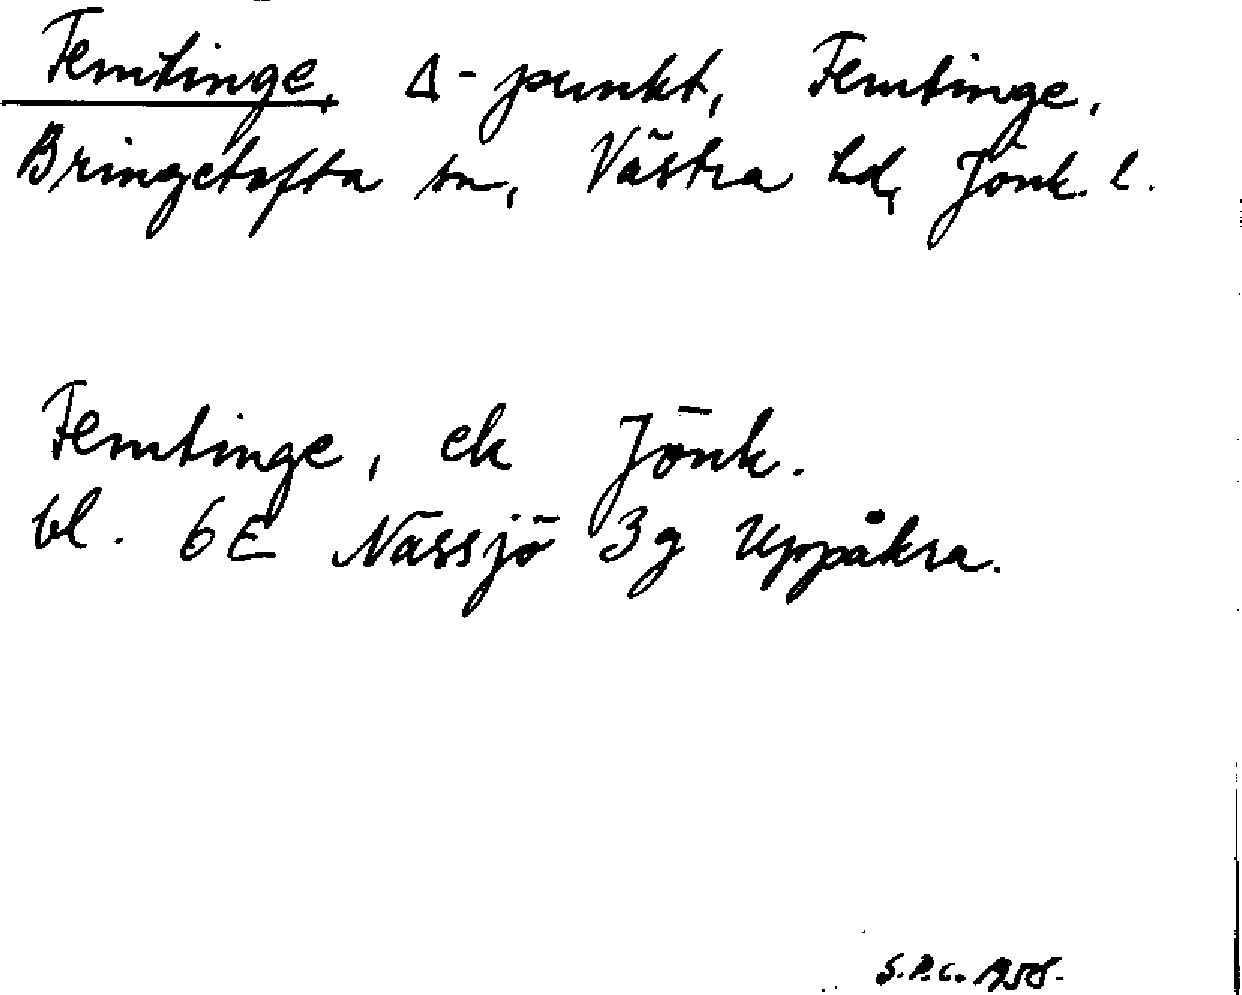 Femtinge, Δ-punkt, Femtinge,
Bringetofta sn, Västra hd, Jönk. l.
Femtinge, ek Jönk.
bl. 6E Nässjö 3g Uppåkra.